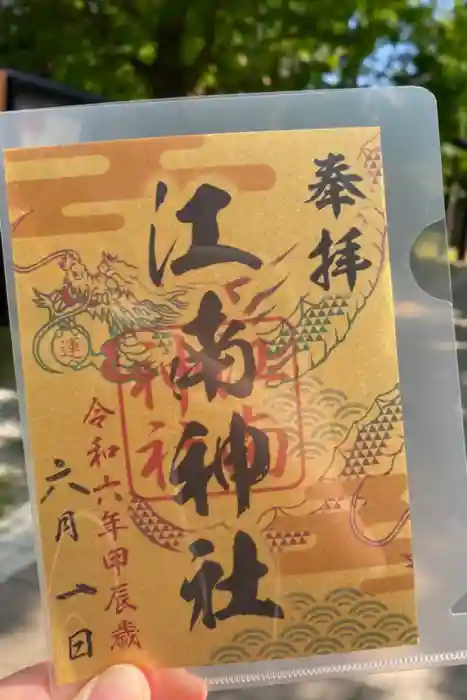 奉拝
江南神社
江南
神社
運
令和六年甲辰歳
六月一日